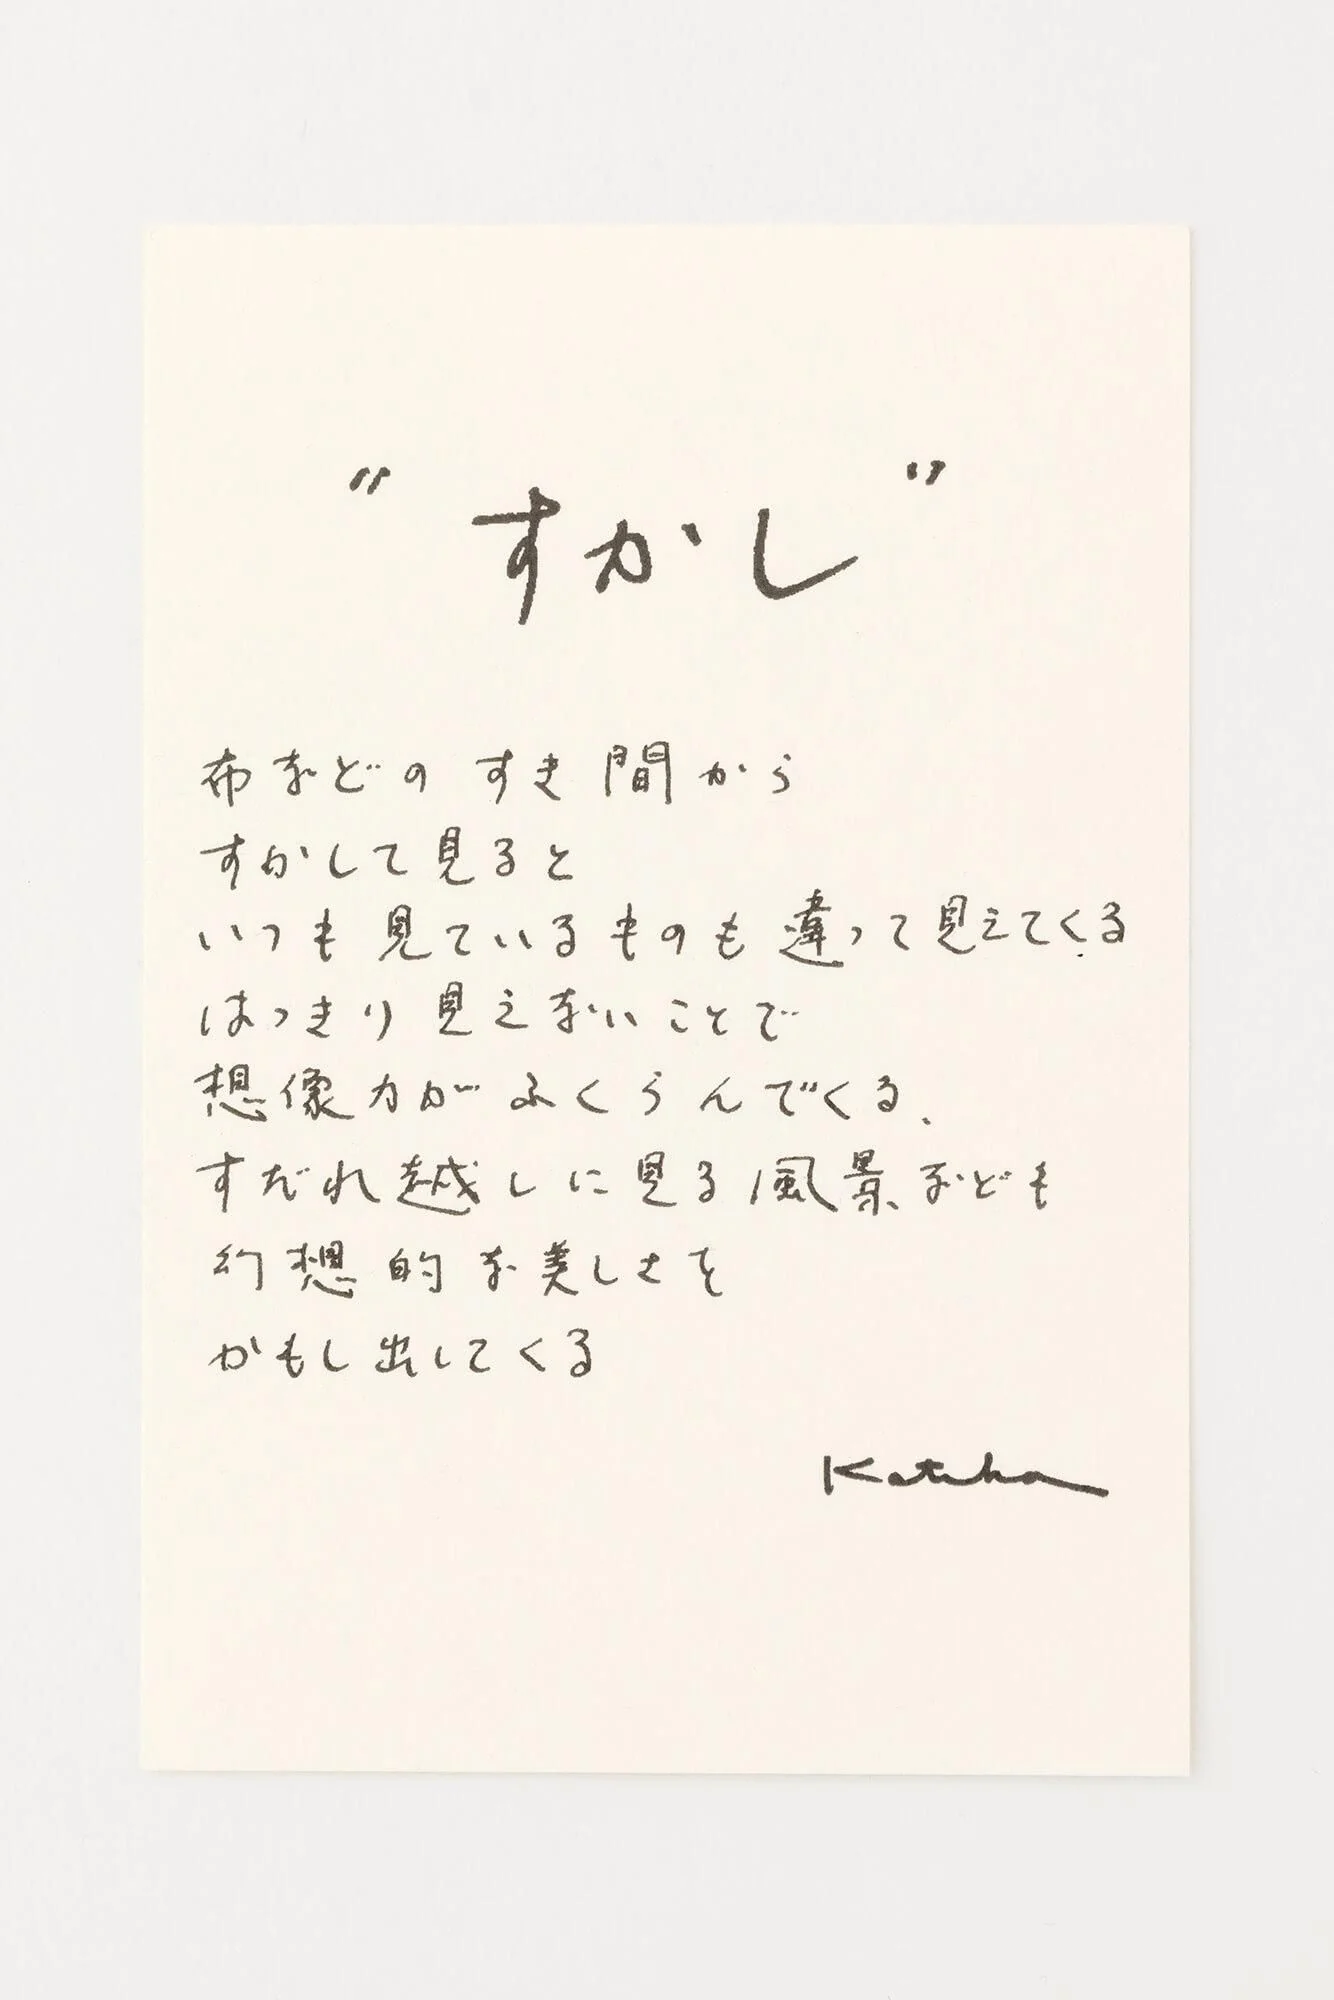 "すかし"
布などのすき間から
すかして見ると
いつも見ているものも違って見えてくる
はっきり見えないことで
想像力がふくらんでくる、
すだれ越しに見る風景、なども
幻想的な美しさを
かもし出してくる